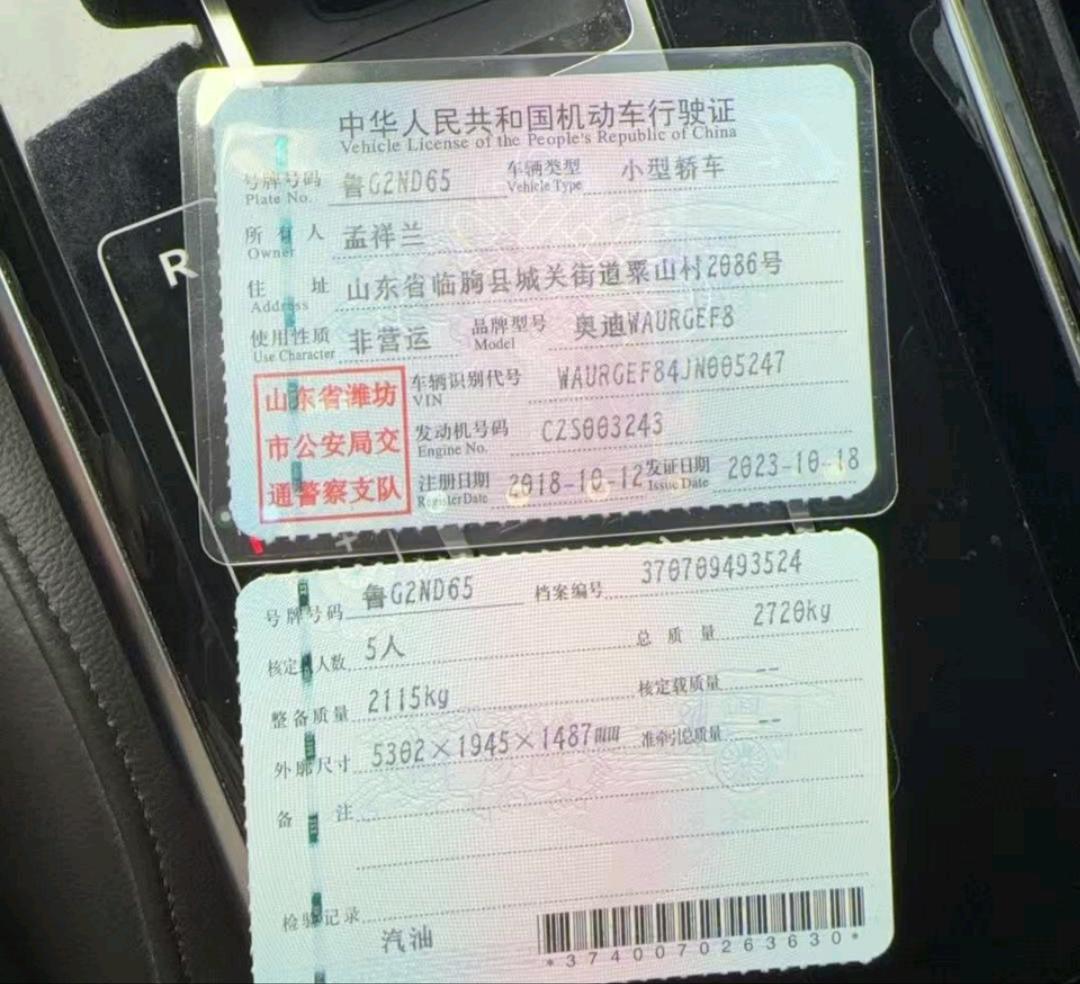 R
中华人民共和国机动车行驶证
Vehicle License of the People's Republic of China
号牌号码 鲁G2ND65 车辆类型 小型轿车
Plate No. Vehicle Type
所有人 孟祥兰
Owner
住址 山东省临朐县城关街道粟山村2086号
Address
使用性质 非营运 品牌型号 奥迪WAURGEF8
Use Character Model
山东省潍坊
市公安局交
通警察支队
车辆识别代号 WAURGEF84JN005247
VIN
发动机号码 CZS003243
Engine No.
注册日期 2018-10-12 发证日期 2023-10-18
Register Date Issue Date
号牌号码 鲁G2ND65 档案编号 370709493524
核定人数 5人 总质量 2720kg
整备质量 2115kg 核定载质量 --
外廓尺寸 5302×1945×1487mm 准牵引总质量 --
备注
检验记录
汽油
*3740070263630*